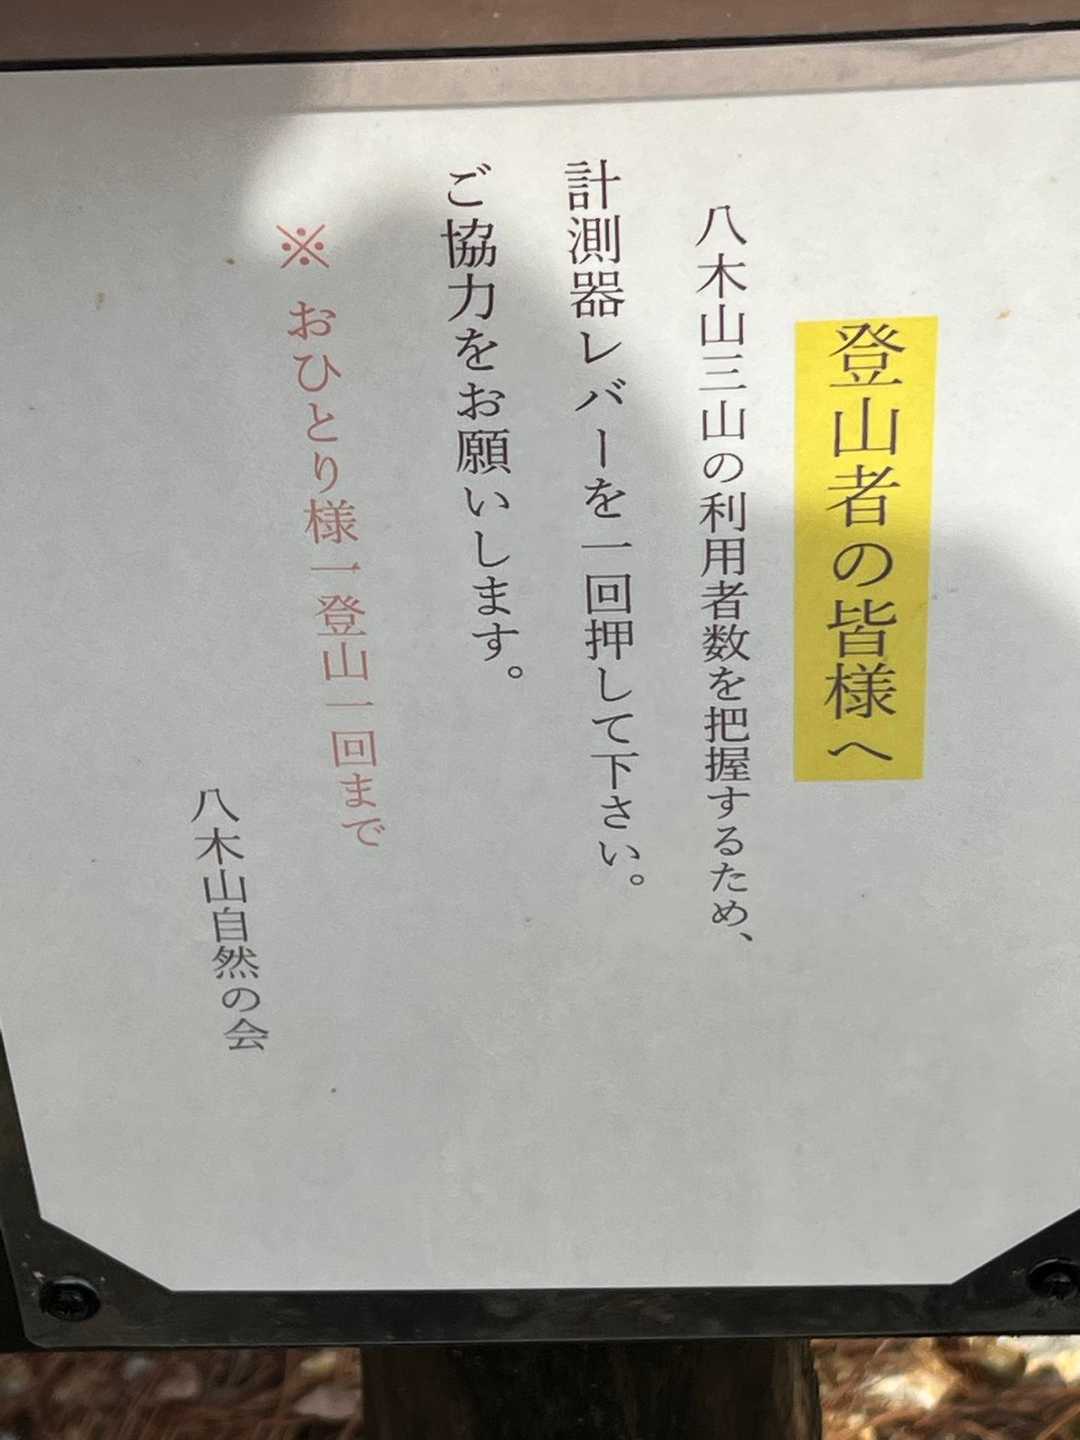 登山者の皆様へ
八木山三山の利用者数を把握するため、
計測器レバーを一回押して下さい。
ご協力をお願いします。
※ おひとり様一登山一回まで
八木山自然の会